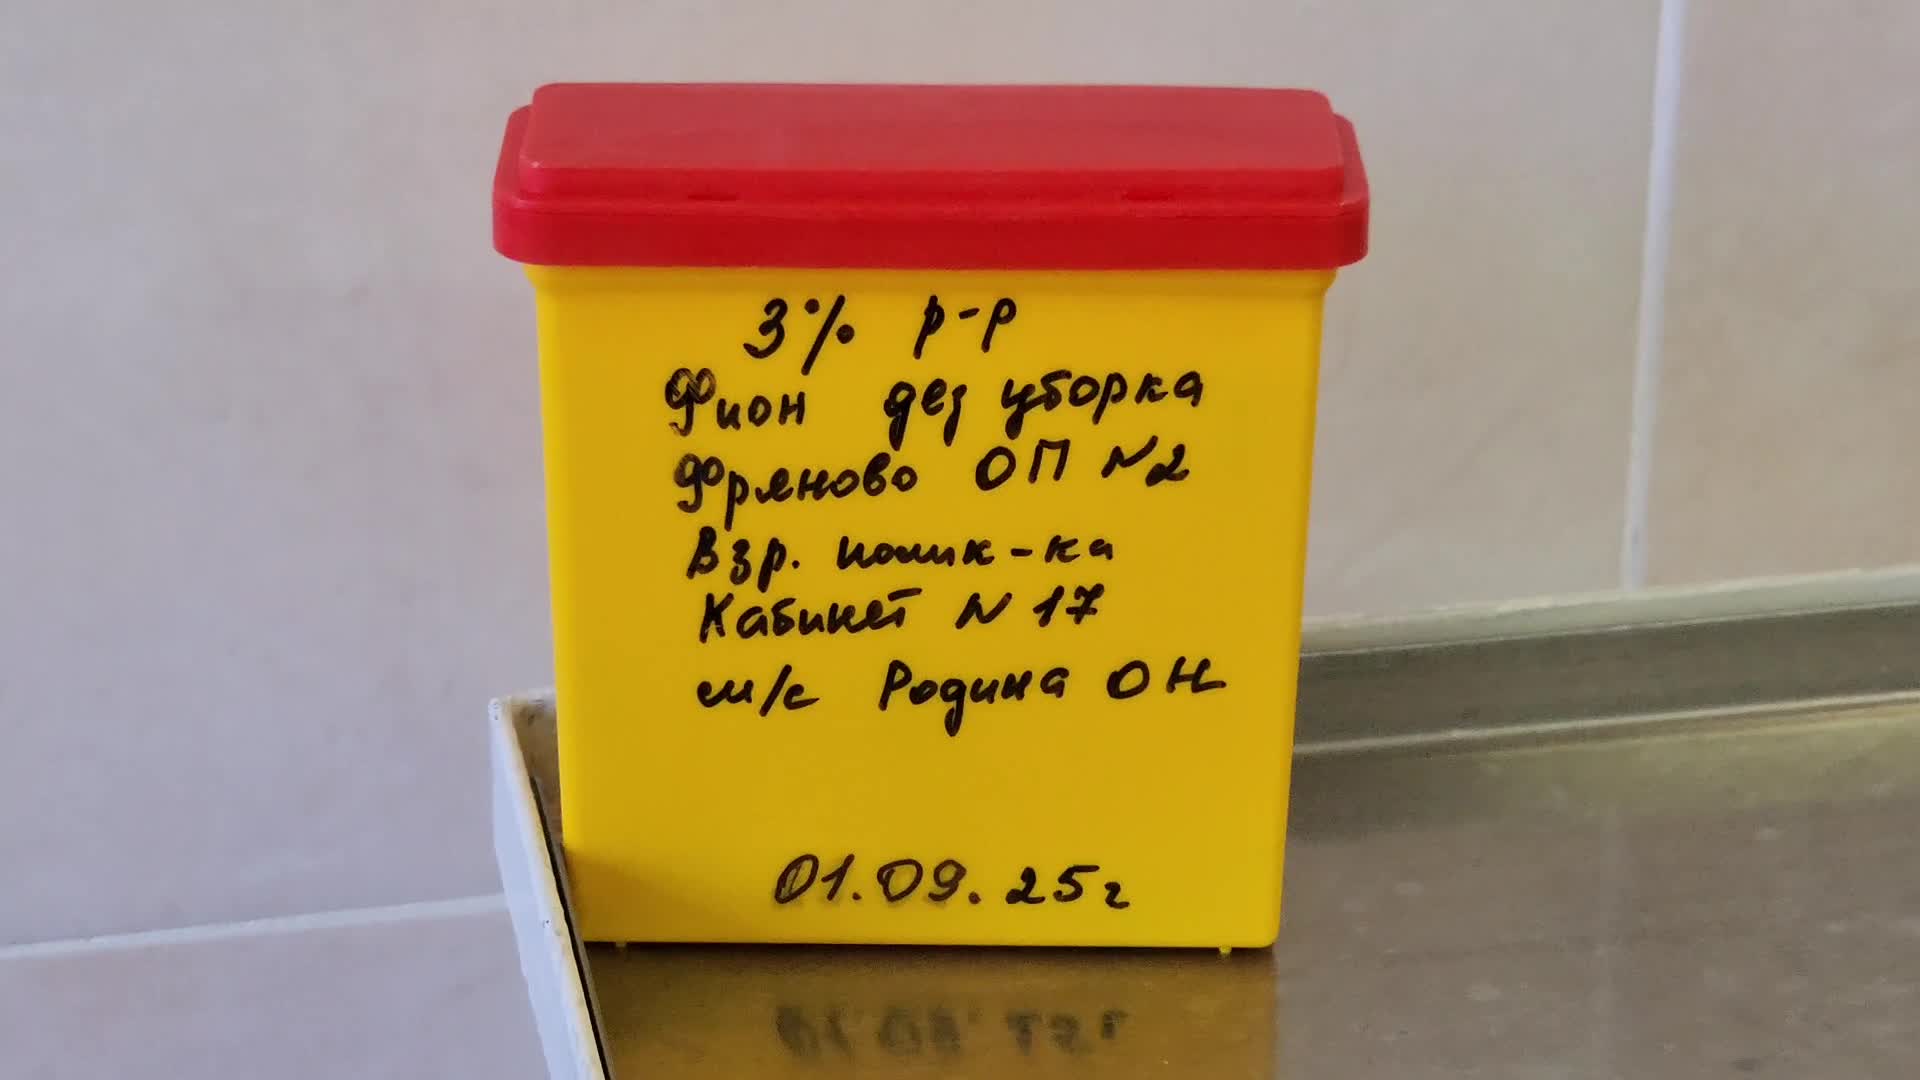 3% р-р
Фион дез уборка
Фряново ОП N2
Взр. полик-ка
Кабинет N 17
м/с Родина ОН
01.09.25г